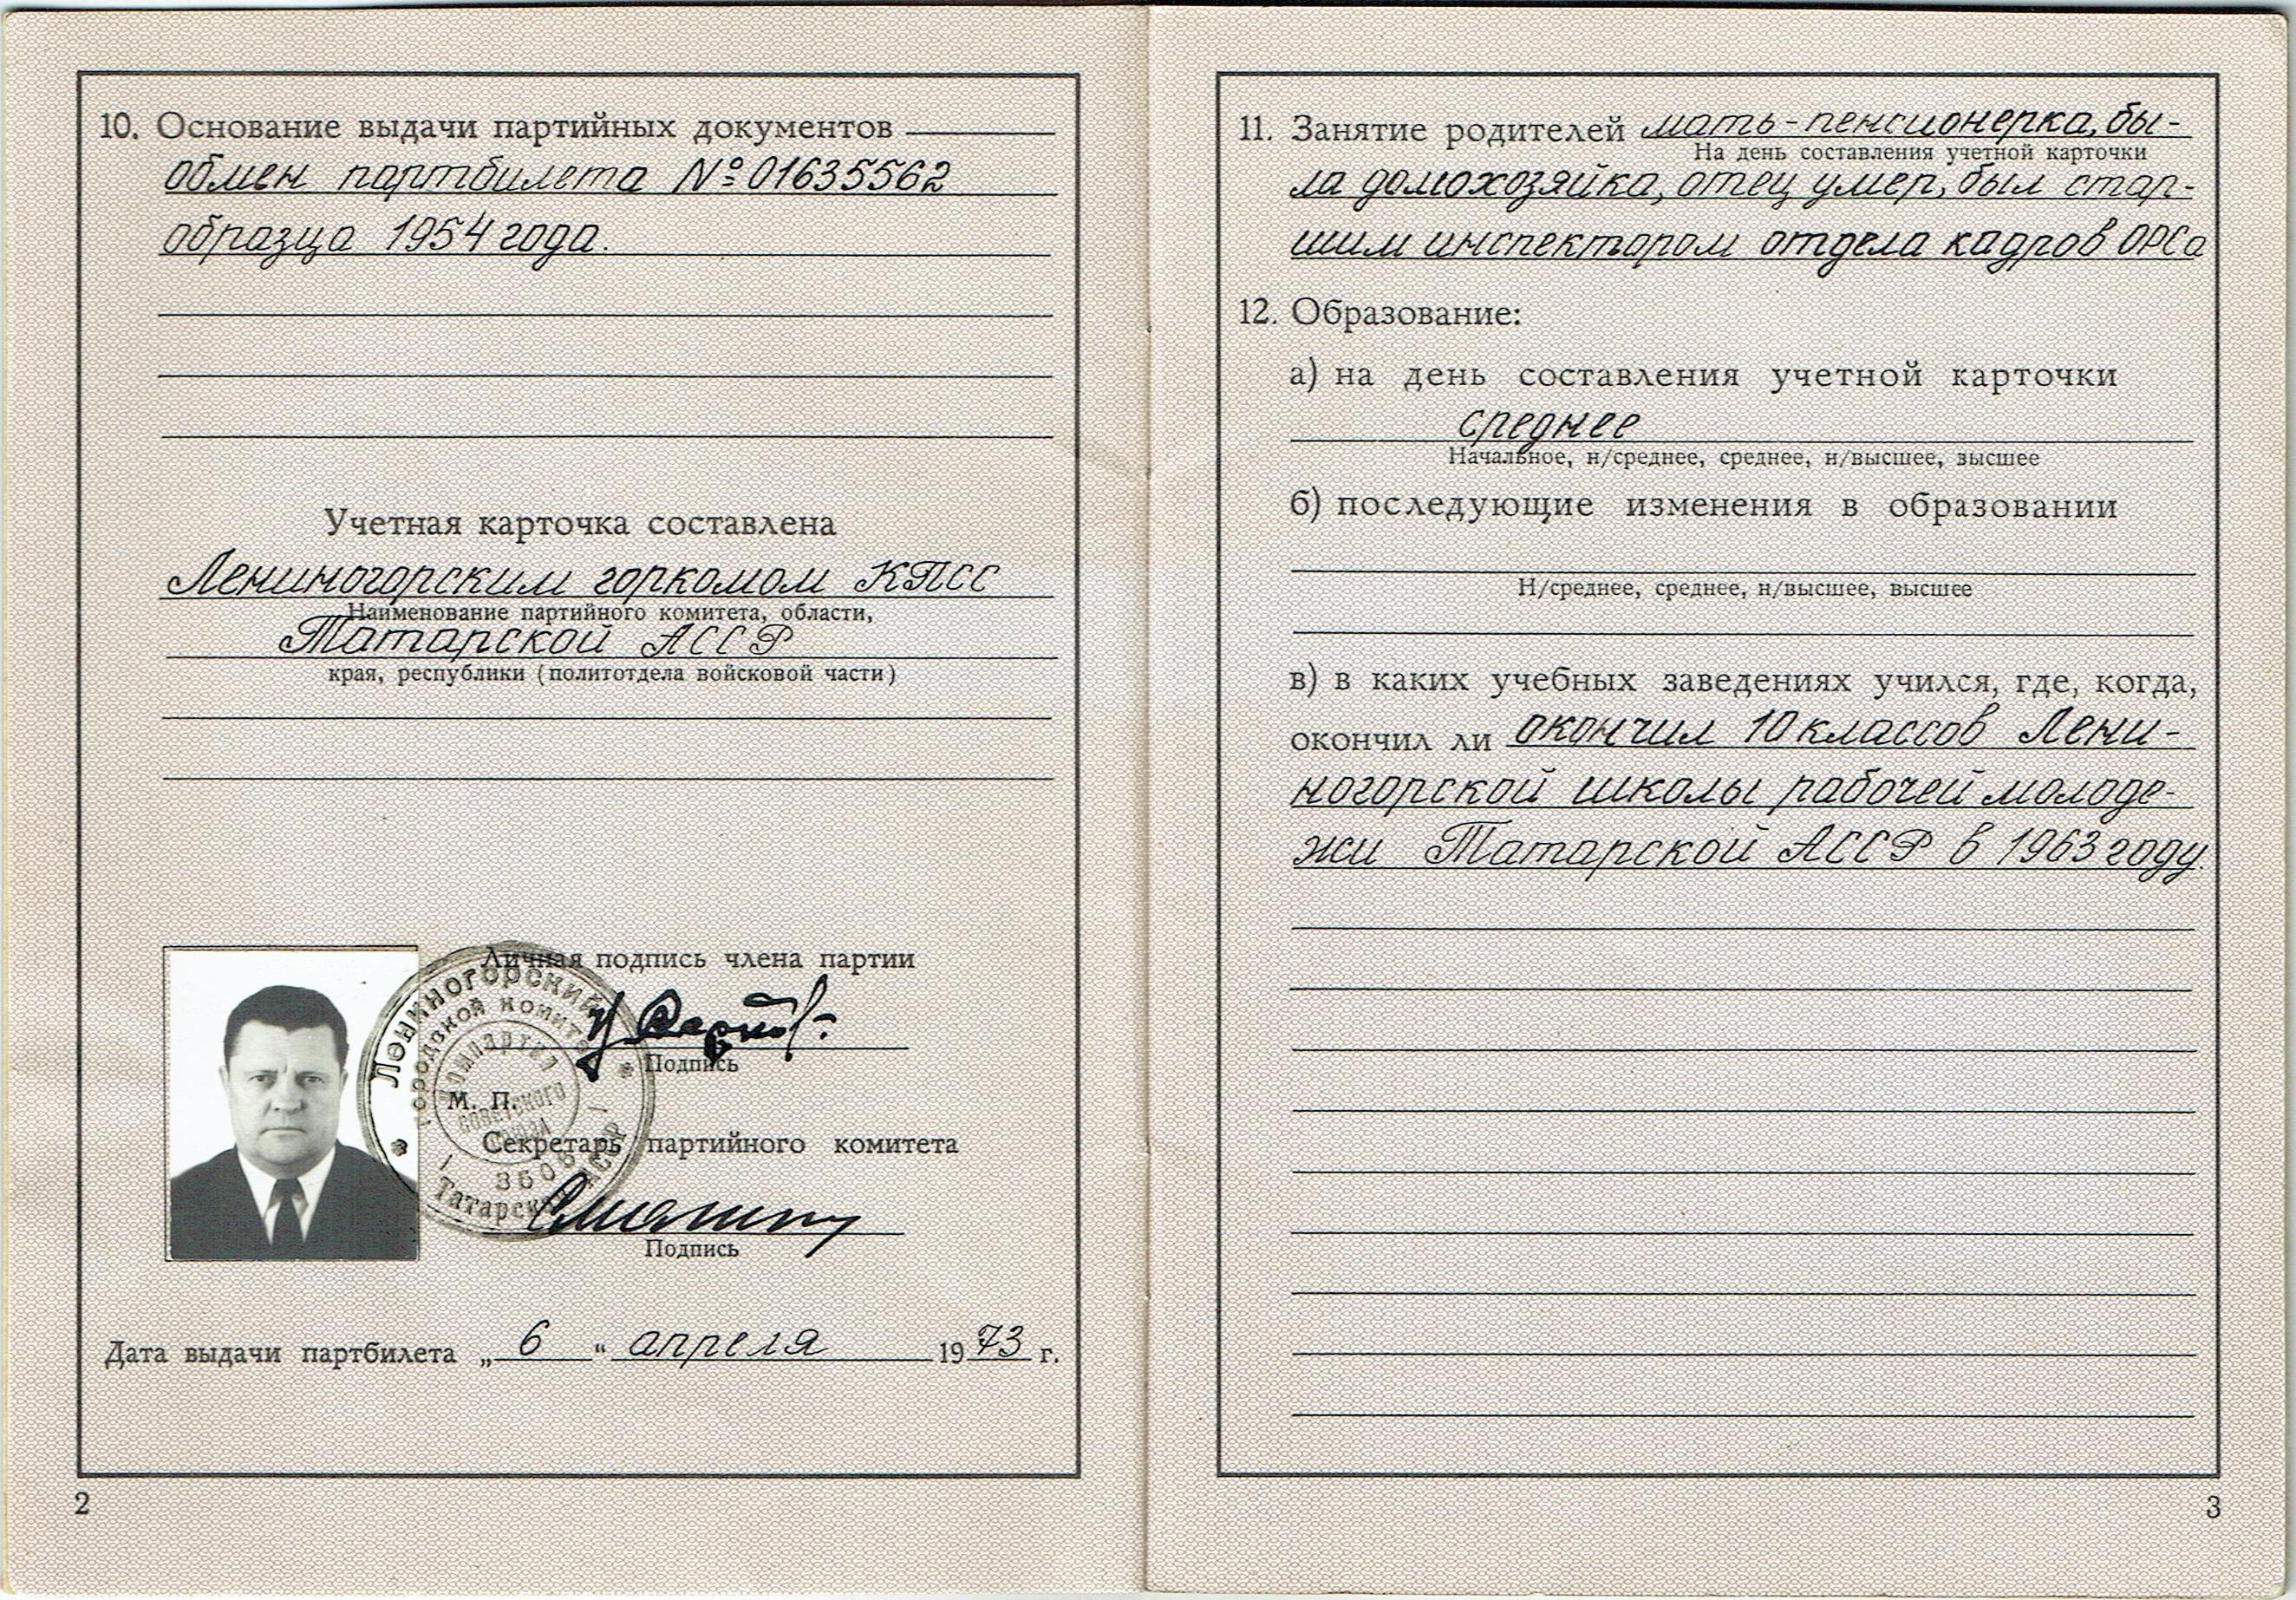 10. Основание выдачи партийных документов
обмен партбилета № 01635562
образца 1954 года.
Учетная карточка составлена
Лениногорским горкомом КПСС
Наименование партийного комитета, области,
Татарской АССР
края, республики (политотдела войсковой части)
Личная подпись члена партии
Подпись
М. П.
Секретарь партийного комитета
Подпись
Лениногорский
городской комитет
Компартия
Советского
Союза
3606
Татарской АССР
Дата выдачи партбилета „ 6 “ апреля 1973 г.
2
11. Занятие родителей мать-пенсионерка, бы-
На день составления учетной карточки
ла домохозяйка, отец умер, был стар-
шим инспектором отдела кадров ОРСа
12. Образование:
а) на день составления учетной карточки
среднее
Начальное, н/среднее, среднее, н/высшее, высшее
б) последующие изменения в образовании
Н/среднее, среднее, н/высшее, высшее
в) в каких учебных заведениях учился, где, когда,
окончил ли окончил 10 классов Лени-
ногорской школы рабочей молоде-
жи Татарской АССР в 1963 году.
3